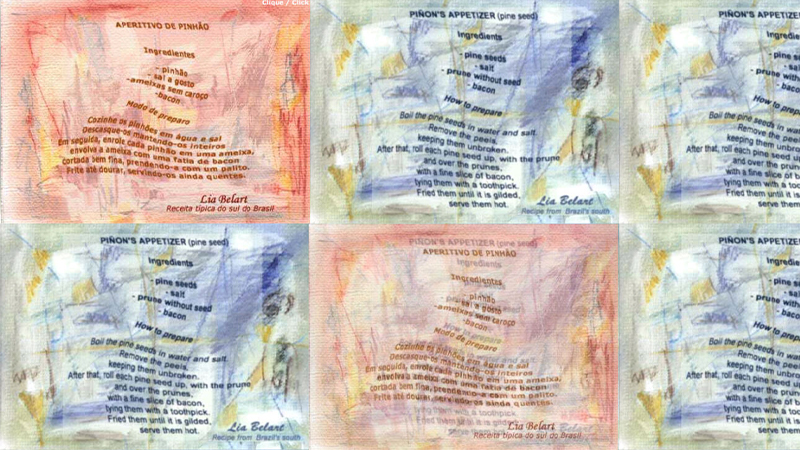 Clique / Click
APERITIVO DE PINHÃO
Ingredientes
- pinhão
- sal a gosto
-ameixas sem caroço
-bacon
Modo de preparo
Cozinhe os pinhões em água e sal
Descasque-os mantendo-os inteiros
Em seguida, enrole cada pinhão em uma ameixa,
envolva a ameixa com uma fatia de bacon
cortada bem fina, prendendo-a com um palito.
Frite até dourar, servindo-os ainda quentes.
Lia Belart
Receita típica do sul do Brasil
PIÑON'S APPETIZER (pine seed)
Ingredients
- pine seeds
- salt
- prune without seed
- bacon
How to prepare
Boil the pine seeds in water and salt.
Remove the peels,
keeping them unbroken.
After that, roll each pine seed up, with the prune
and over the prunes,
with a fine slice of bacon,
tying them with a toothpick.
Fried them until it is gilded,
serve them hot.
Lia Belart
Recipe from Brazil's south
PIÑON'S APPETIZER
Ingredients
- pine seeds
- salt
- prune without
- bacon
How to prepare
Boil the pine seeds in wate
Remove the peels,
keeping them unbro
After that, roll each pine seed
and over the prune
with a fine slice of b
tying them with a too
Fried them until it is
serve them
PIÑON'S APPETIZER (pine seed)
Ingredients
- pine seeds
- salt
- prune without seed
- bacon
How to prepare
Boil the pine seeds in water and salt.
Remove the peels,
keeping them unbroken.
After that, roll each pine seed up, with the prune
and over the prunes,
with a fine slice of bacon,
tying them with a toothpick.
Fried them until it is gilded,
serve them hot.
Lia Belart
Recipe from Brazil's south
PIÑON'S APPETIZER (pine seed)
APERITIVO DE PINHÃO
Ingredients
Ingredientes
- pinhão
- sal a gosto
-ameixas sem caroço
-bacon
Modo de preparo
Cozinhe os pinhões em água e sal
Descasque-os mantendo-os inteiros
Em seguida, enrole cada pinhão em uma ameixa,
envolva a ameixa com uma fatia de bacon
cortada bem fina, prendendo-a com um palito.
Frite até dourar, servindo-os ainda quentes.
Lia Belart
Receita típica do sul do Brasil
PIÑON'S APPETIZER
Ingredients
- pine seeds
- salt
- prune without
- bacon
How to prepare
Boil the pine seeds in wate
Remove the peels,
keeping them unbro
After that, roll each pine seed
and over the prune
with a fine slice of b
tying them with a too
Fried them until it is
serve them